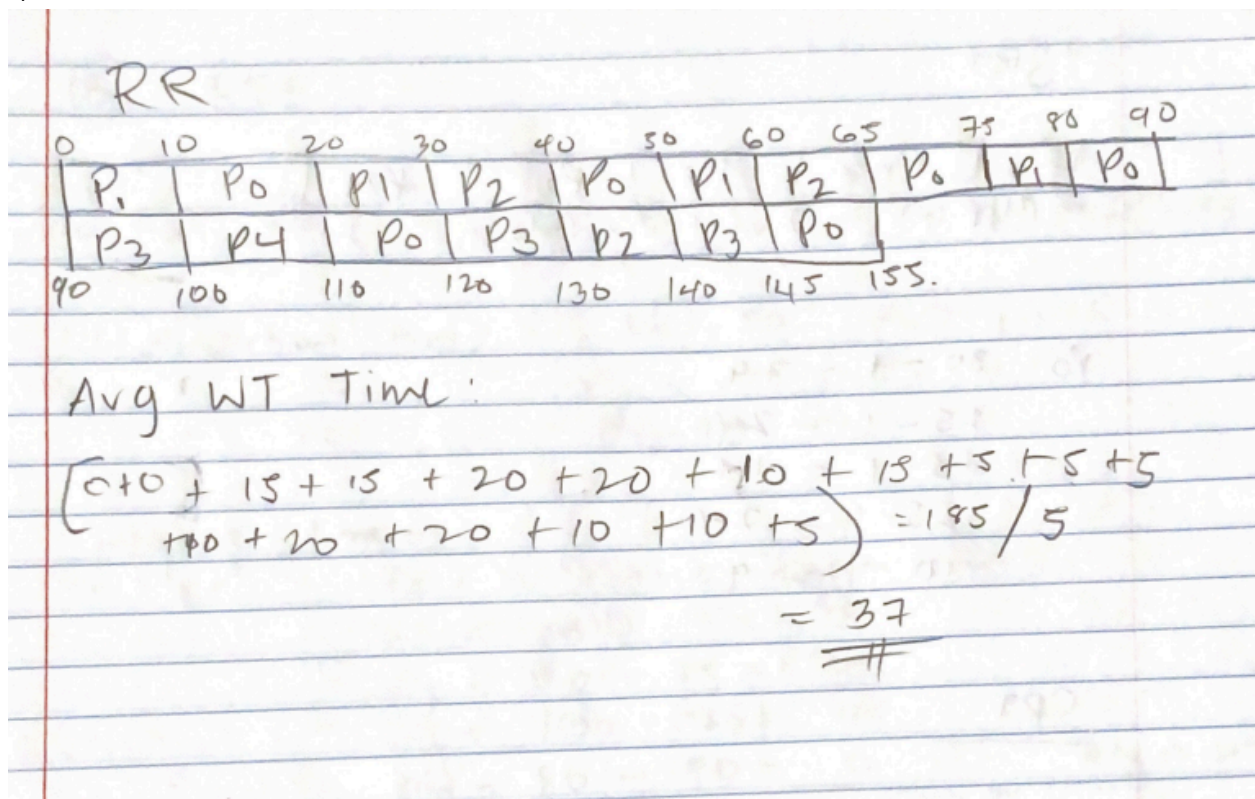 RR
0 10 20 30 40 50 60 65 75 80 90
P1 P0 P1 P2 P0 P1 P2 P0 P1 P0
P3 P4 P0 P3 P2 P3 P0
90 100 110 120 130 140 145 155.
Avg WT Time:
(0+0 + 15 + 15 + 20 + 20 + 10 + 15 + 5 + 5 + 5
+ 20 + 20 + 10 + 10 + 5) = 185 / 5
= 37